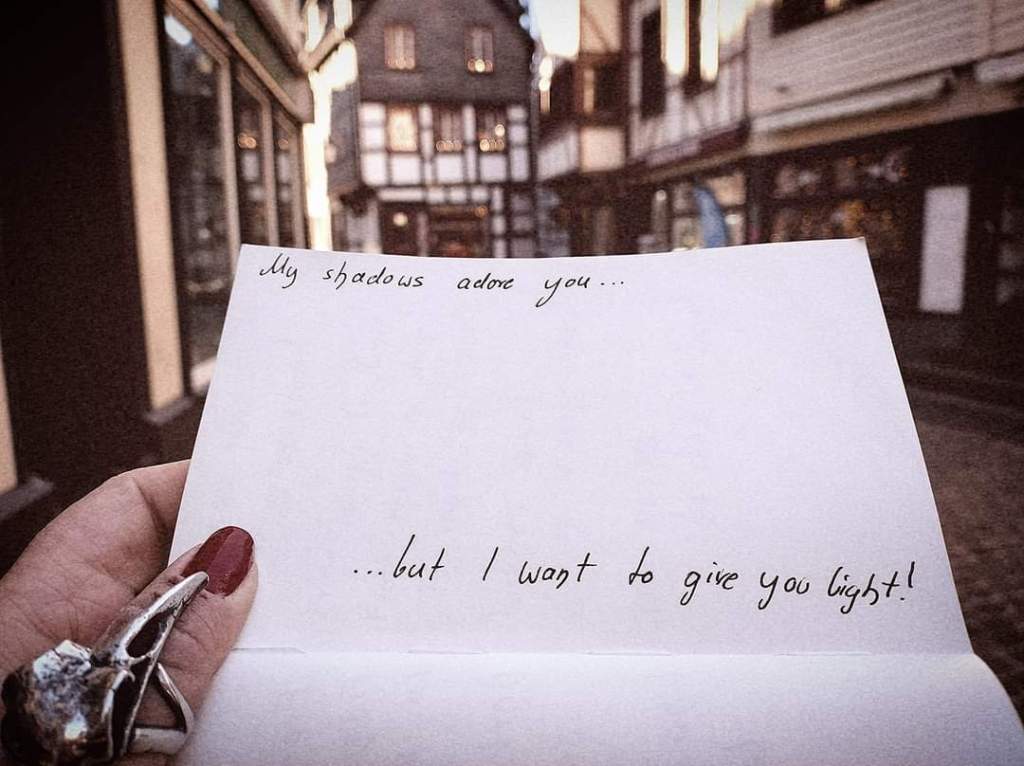 My shadows adore you...
...but I want to give you light!